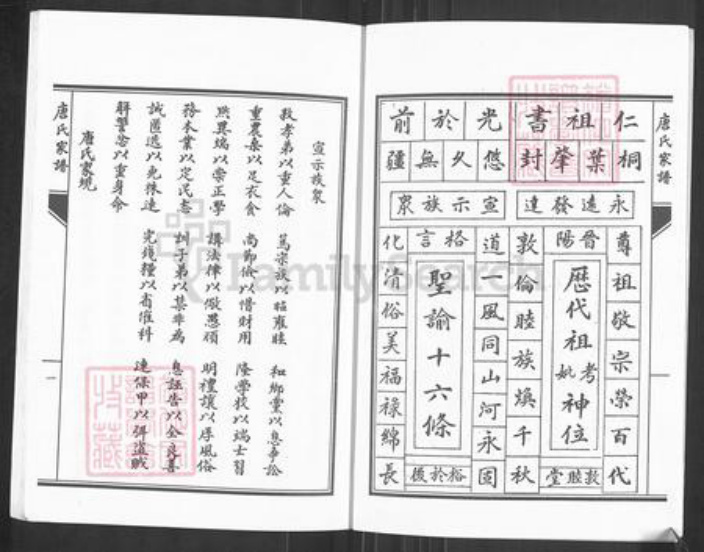 唐氏家譜
仁祖書光於前
桐葉肇封悠久無疆
永遠發達
宣示族眾
尊祖敬宗榮百代
晉陽
歷代祖考妣神位
敦睦堂
敦倫睦族煥千秋
道一風同山河永固
格言
聖諭十六條
裕於後
化清俗美福祿綿長
宣示族眾
敦孝弟以重人倫 篤宗族以昭雍睦 和鄉黨以息爭訟
重農桑以足衣食 尚節儉以惜財用 隆學校以端士習
黜異端以崇正學 講法律以儆愚頑 明禮讓以厚風俗
務本業以定民志 訓子弟以禁非為 息誣告以全良善
誡匿逃以免株連 完錢糧以省催科 連保甲以弭盜賊
解讐忿以重身命
唐氏家規
唐氏家譜
FamilySearch